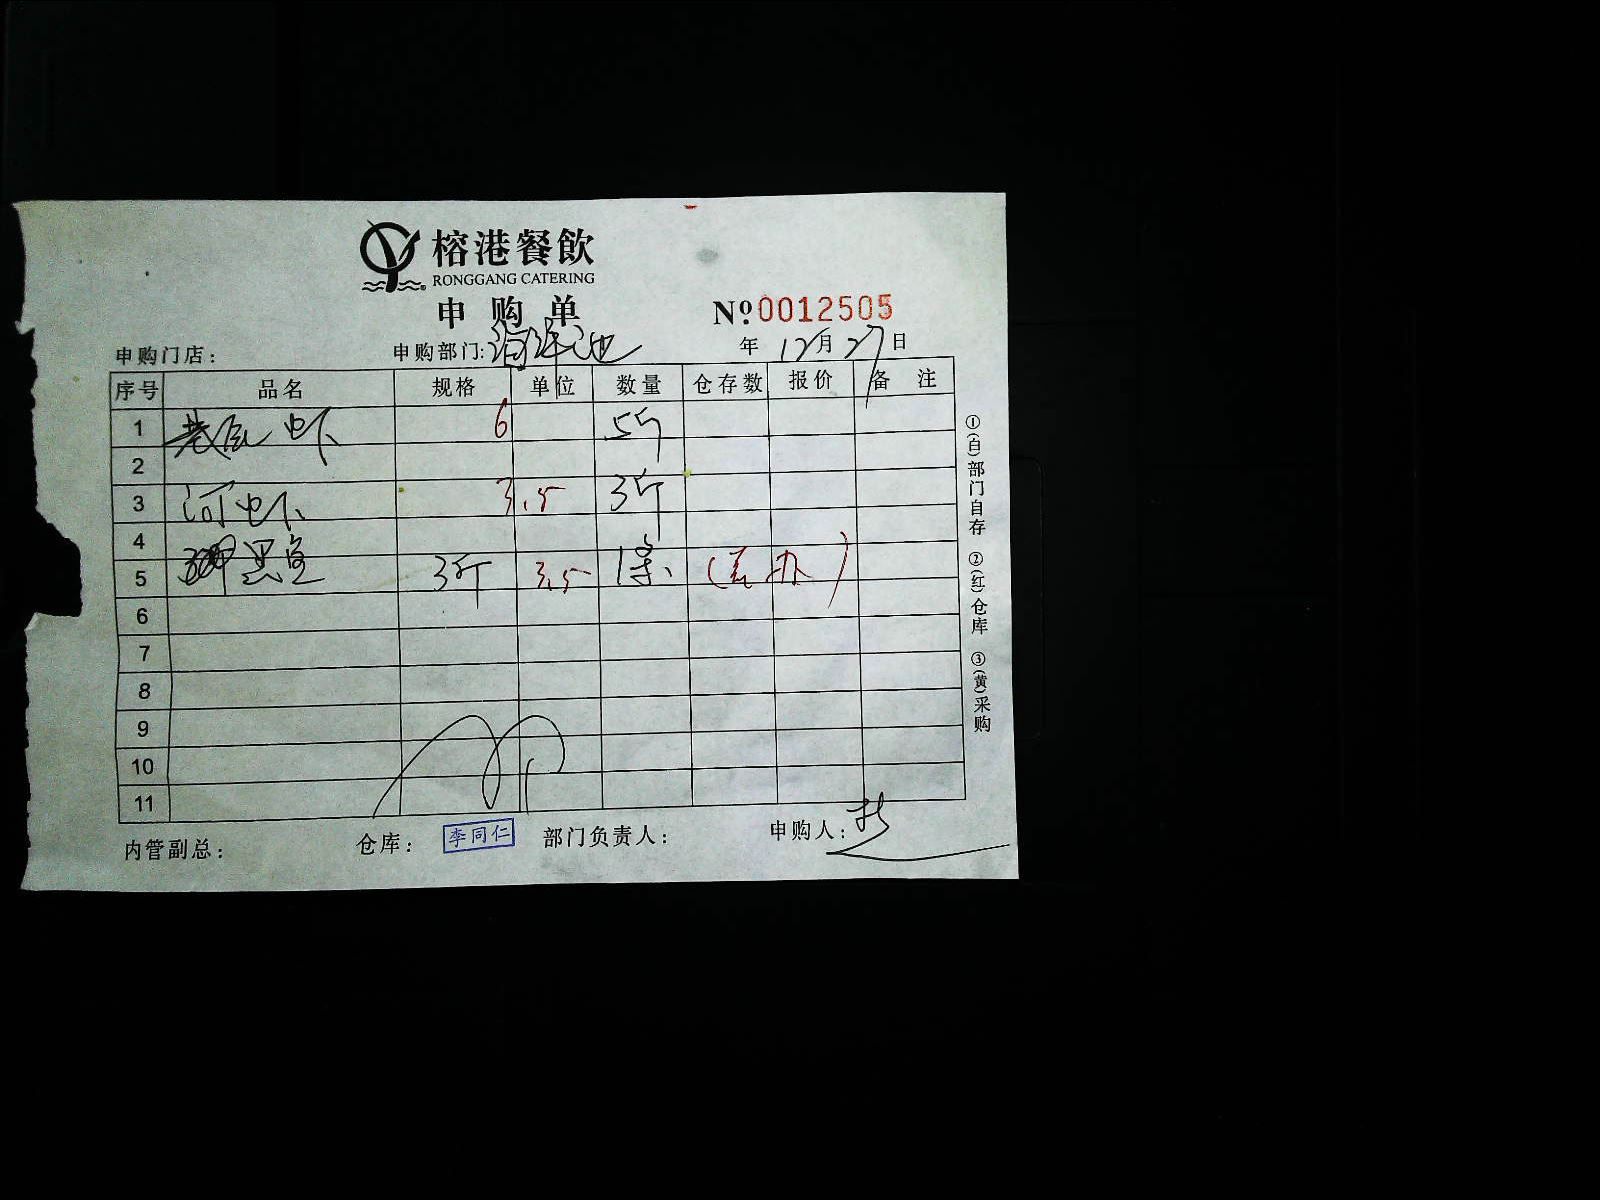 榕港餐飲
RONGGANG CATERING
申购单
Nº 0012505
申购门店： 申购部门：海鲜池 年 12月27日
序号 品名 规格 单位 数量 仓存数 报价 备注
1 虾 6 5斤
2
3 河虾 3.5 3斤
4
5 黑鱼 3斤 3.5 1条
6
7
8
9
10
11
内管副总： 仓库： 李同仁 部门负责人： 申购人：
①(白)部门自存 ②(红)仓库 ③(黄)采购